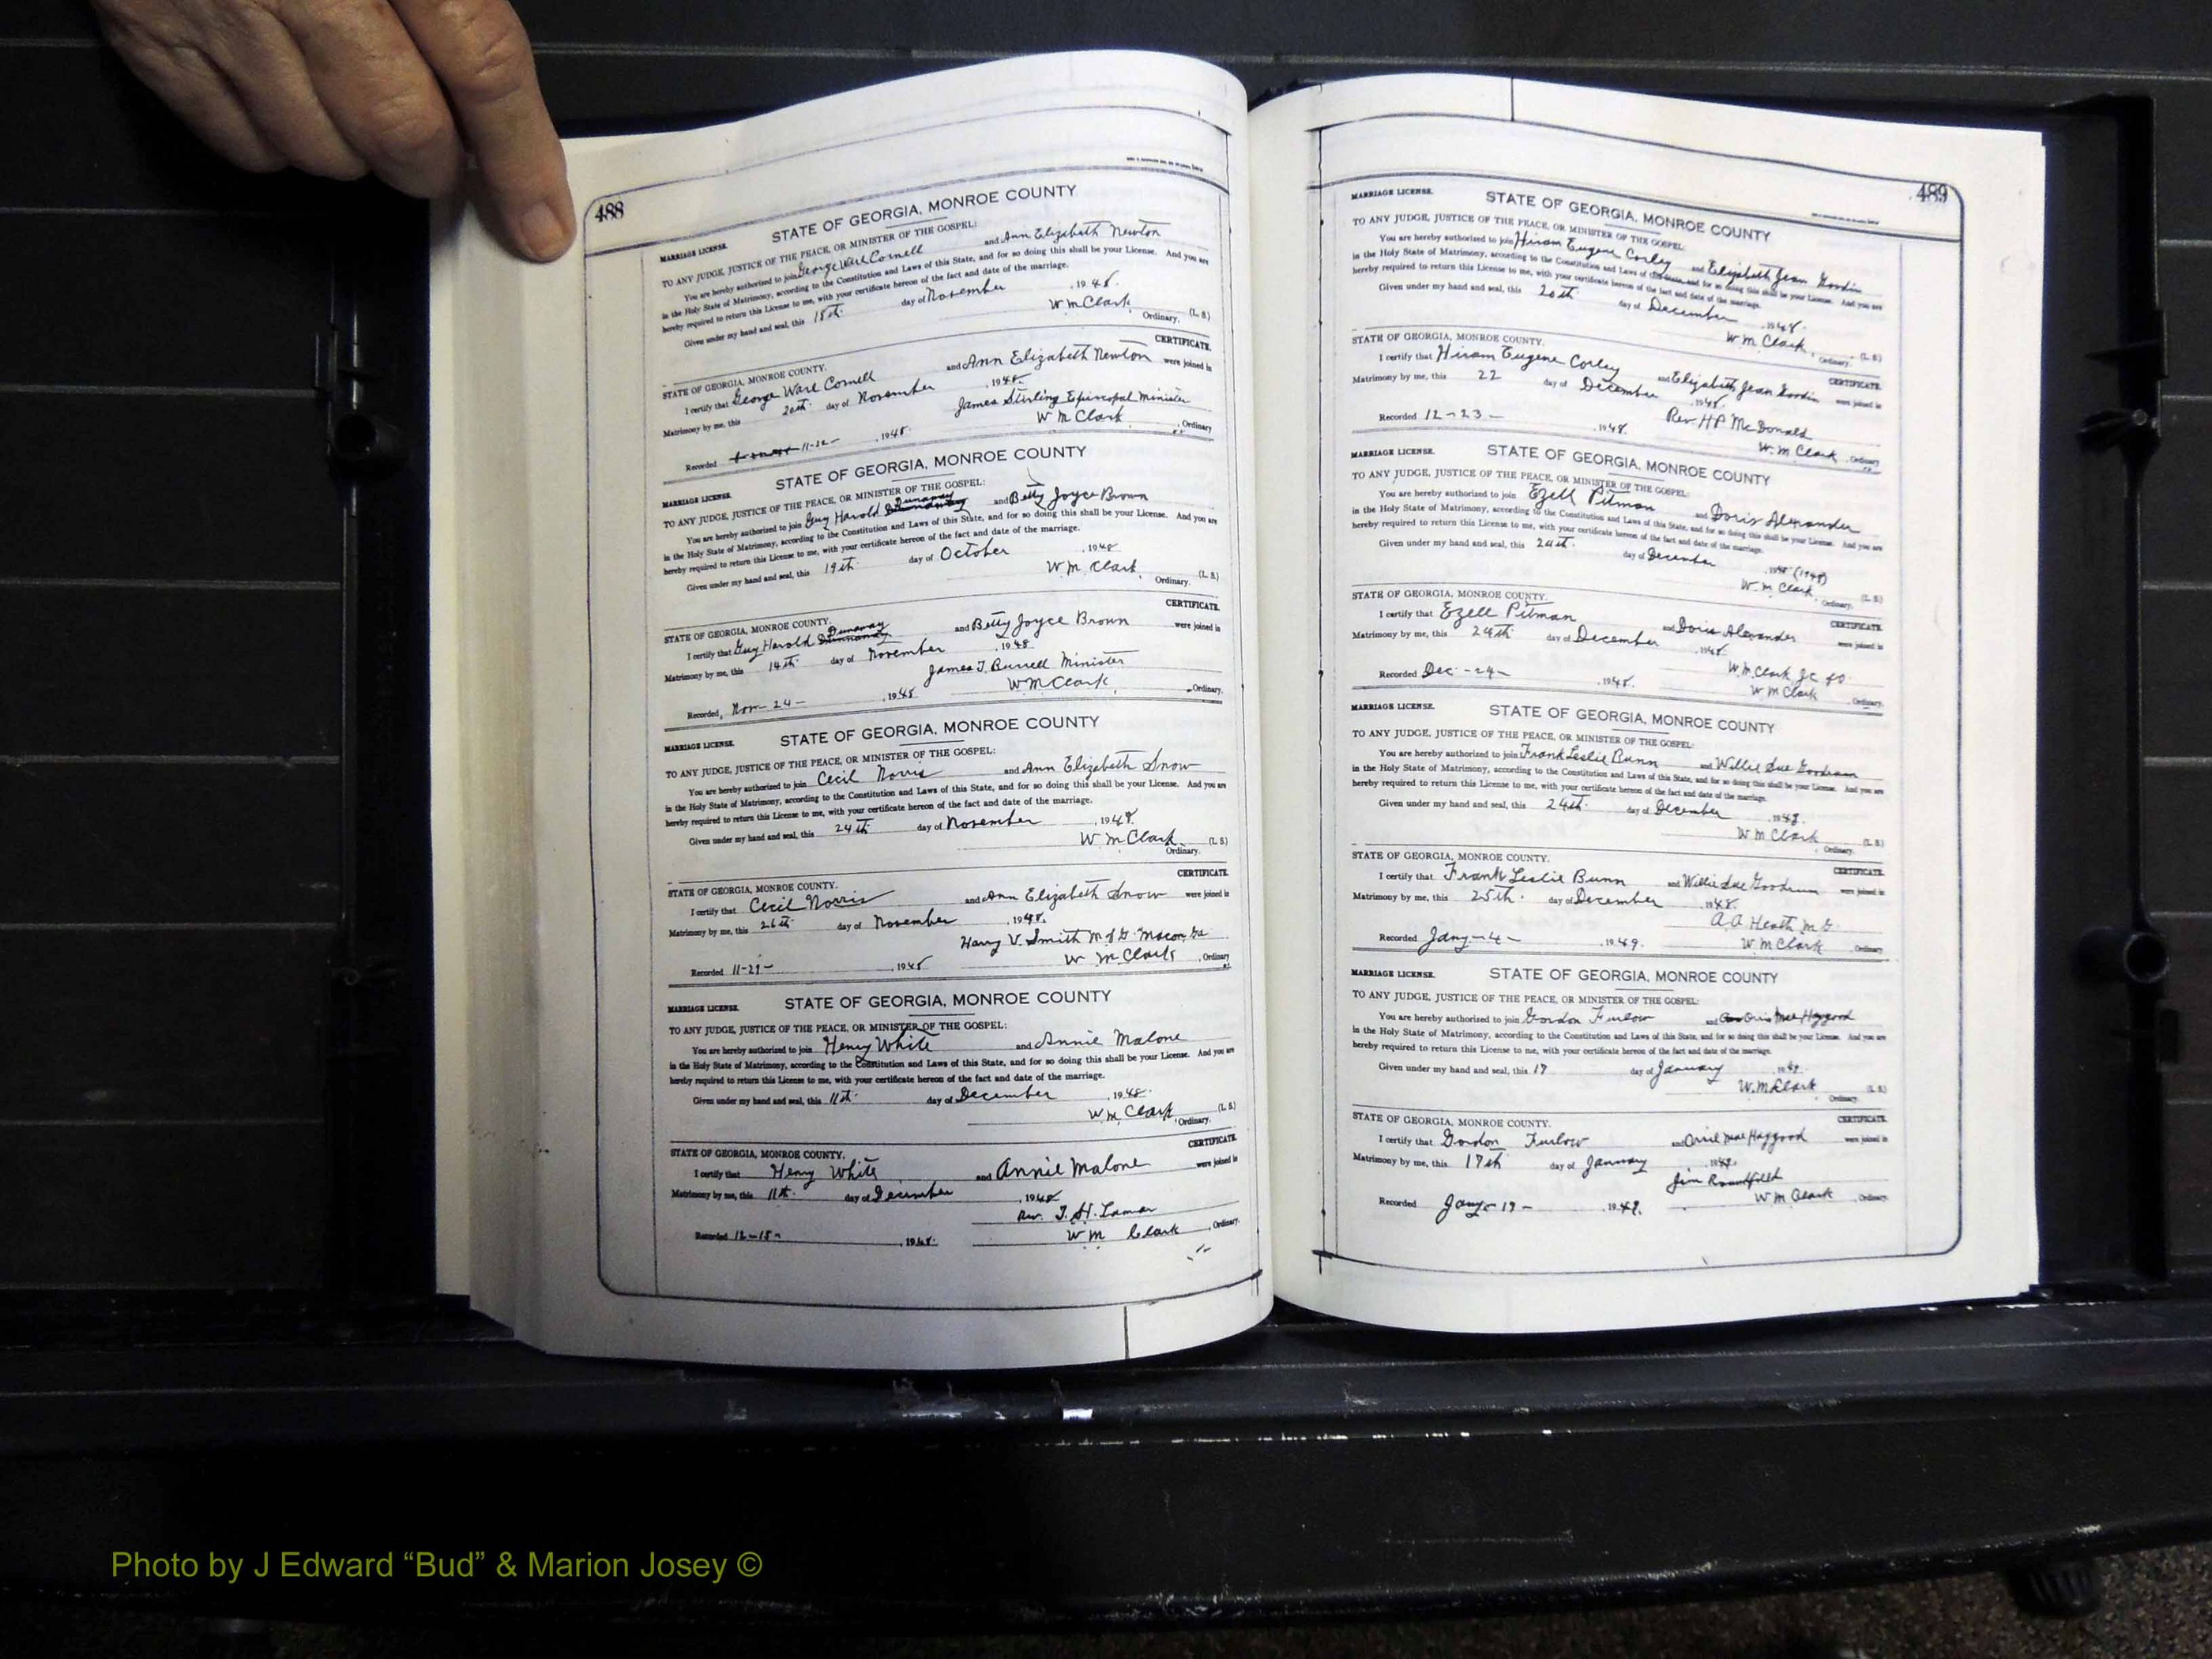 488
MARRIAGE LICENSE. STATE OF GEORGIA, MONROE COUNTY
TO ANY JUDGE, JUSTICE OF THE PEACE, OR MINISTER OF THE GOSPEL:
You are hereby authorized to join George Ware Cornell and Ann Elizabeth Newton
in the Holy State of Matrimony, according to the Constitution and Laws of this State, and for so doing this shall be your License. And you are
hereby required to return this License to me, with your certificate hereon of the fact and date of the marriage.
Given under my hand and seal, this 18th day of November, 1948.
W M Clark (L. S.)
Ordinary.
CERTIFICATE.
STATE OF GEORGIA, MONROE COUNTY.
I certify that George Ware Cornell and Ann Elizabeth Newton were joined in
Matrimony by me, this 20th day of November, 1948.
James Stirling Episcopal Minister
Recorded 11-22-, 1948. W M Clark, Ordinary
MARRIAGE LICENSE. STATE OF GEORGIA, MONROE COUNTY
TO ANY JUDGE, JUSTICE OF THE PEACE, OR MINISTER OF THE GOSPEL:
You are hereby authorized to join Guy Harold Dunaway and Betty Joyce Brown
in the Holy State of Matrimony, according to the Constitution and Laws of this State, and for so doing this shall be your License. And you are
hereby required to return this License to me, with your certificate hereon of the fact and date of the marriage.
Given under my hand and seal, this 19th day of October, 1948
W.M. Clark, (L. S.)
Ordinary.
CERTIFICATE.
STATE OF GEORGIA, MONROE COUNTY.
I certify that Guy Harold Dunaway and Betty Joyce Brown were joined in
Matrimony by me, this 14th day of November, 1948
James T. Burrell Minister
Recorded, Nov-24-, 1948 W M Clark, Ordinary.
MARRIAGE LICENSE. STATE OF GEORGIA, MONROE COUNTY
TO ANY JUDGE, JUSTICE OF THE PEACE, OR MINISTER OF THE GOSPEL:
You are hereby authorized to join Cecil Norris and Ann Elizabeth Snow
in the Holy State of Matrimony, according to the Constitution and Laws of this State, and for so doing this shall be your License. And you are
hereby required to return this License to me, with your certificate hereon of the fact and date of the marriage.
Given under my hand and seal, this 24th day of November, 1948
W M Clark (L. S.)
Ordinary.
CERTIFICATE.
STATE OF GEORGIA, MONROE COUNTY.
I certify that Cecil Norris and Ann Elizabeth Snow were joined in
Matrimony by me, this 26th day of November, 1948.
Harry V. Smith M of G. Macon, Ga
Recorded 11-29-, 1948 W M Clark, Ordinary
MARRIAGE LICENSE. STATE OF GEORGIA, MONROE COUNTY
TO ANY JUDGE, JUSTICE OF THE PEACE, OR MINISTER OF THE GOSPEL:
You are hereby authorized to join Henry White and Annie Malone
in the Holy State of Matrimony, according to the Constitution and Laws of this State, and for so doing this shall be your License. And you are
hereby required to return this License to me, with your certificate hereon of the fact and date of the marriage.
Given under my hand and seal, this 11th day of December, 1948.
W M Clark (L. S.)
Ordinary.
CERTIFICATE
STATE OF GEORGIA, MONROE COUNTY.
I certify that Henry White and Annie Malone were joined in
Matrimony by me, this 11th day of December, 1948
Rev. T. H. Lamar
Recorded 12-15-, 1948. W M Clark, Ordinary.
489
MARRIAGE LICENSE. STATE OF GEORGIA, MONROE COUNTY
TO ANY JUDGE, JUSTICE OF THE PEACE, OR MINISTER OF THE GOSPEL:
You are hereby authorized to join Hiram Eugene Corley and Elizabeth Jean Goodin
in the Holy State of Matrimony, according to the Constitution and Laws of this State, and for so doing this shall be your License. And you are
hereby required to return this License to me, with your certificate hereon of the fact and date of the marriage.
Given under my hand and seal, this 20th day of December, 1948.
W M Clark, (L. S.)
Ordinary.
STATE OF GEORGIA, MONROE COUNTY. CERTIFICATE.
I certify that Hiram Eugene Corley and Elizabeth Jean Goodin were joined in
Matrimony by me, this 22 day of December, 1948.
Rev. H P McDonald
Recorded 12-23-, 1948. W. M Clark, Ordinary
MARRIAGE LICENSE. STATE OF GEORGIA, MONROE COUNTY
TO ANY JUDGE, JUSTICE OF THE PEACE, OR MINISTER OF THE GOSPEL:
You are hereby authorized to join Ezell Pitman and Doris Alexander
in the Holy State of Matrimony, according to the Constitution and Laws of this State, and for so doing this shall be your License. And you are
hereby required to return this License to me, with your certificate hereon of the fact and date of the marriage.
Given under my hand and seal, this 24th day of December, 1948 (1948)
W. M Clark, (L. S.)
Ordinary.
STATE OF GEORGIA, MONROE COUNTY. CERTIFICATE.
I certify that Ezell Pitman and Doris Alexander were joined in
Matrimony by me, this 24th day of December, 1948.
W. M. Clark
Recorded Dec-24-, 1948. W M Clark, Ordinary.
MARRIAGE LICENSE. STATE OF GEORGIA, MONROE COUNTY
TO ANY JUDGE, JUSTICE OF THE PEACE, OR MINISTER OF THE GOSPEL:
You are hereby authorized to join Frank Leslie Bunn and Willie Sue Goodrum
in the Holy State of Matrimony, according to the Constitution and Laws of this State, and for so doing this shall be your License. And you are
hereby required to return this License to me, with your certificate hereon of the fact and date of the marriage.
Given under my hand and seal, this 24th day of December, 1948.
W M Clark (L. S.)
Ordinary.
STATE OF GEORGIA, MONROE COUNTY. CERTIFICATE.
I certify that Frank Leslie Bunn and Willie Sue Goodrum were joined in
Matrimony by me, this 25th day of December, 1948.
A A Heath M G
Recorded Jany-4-, 1949. W M Clark, Ordinary
MARRIAGE LICENSE. STATE OF GEORGIA, MONROE COUNTY
TO ANY JUDGE, JUSTICE OF THE PEACE, OR MINISTER OF THE GOSPEL:
You are hereby authorized to join Gordon Furlow and Mae Haygood
in the Holy State of Matrimony, according to the Constitution and Laws of this State, and for so doing this shall be your License. And you are
hereby required to return this License to me, with your certificate hereon of the fact and date of the marriage.
Given under my hand and seal, this 17 day of January, 1949.
W. M Clark (L. S.)
Ordinary.
STATE OF GEORGIA, MONROE COUNTY. CERTIFICATE.
I certify that Gordon Furlow and Mae Haygood were joined in
Matrimony by me, this 17th day of January, 1949.
Jim
Recorded Jany-19-, 1949. W M Clark, Ordinary.
Photo by J Edward “Bud” & Marion Josey ©